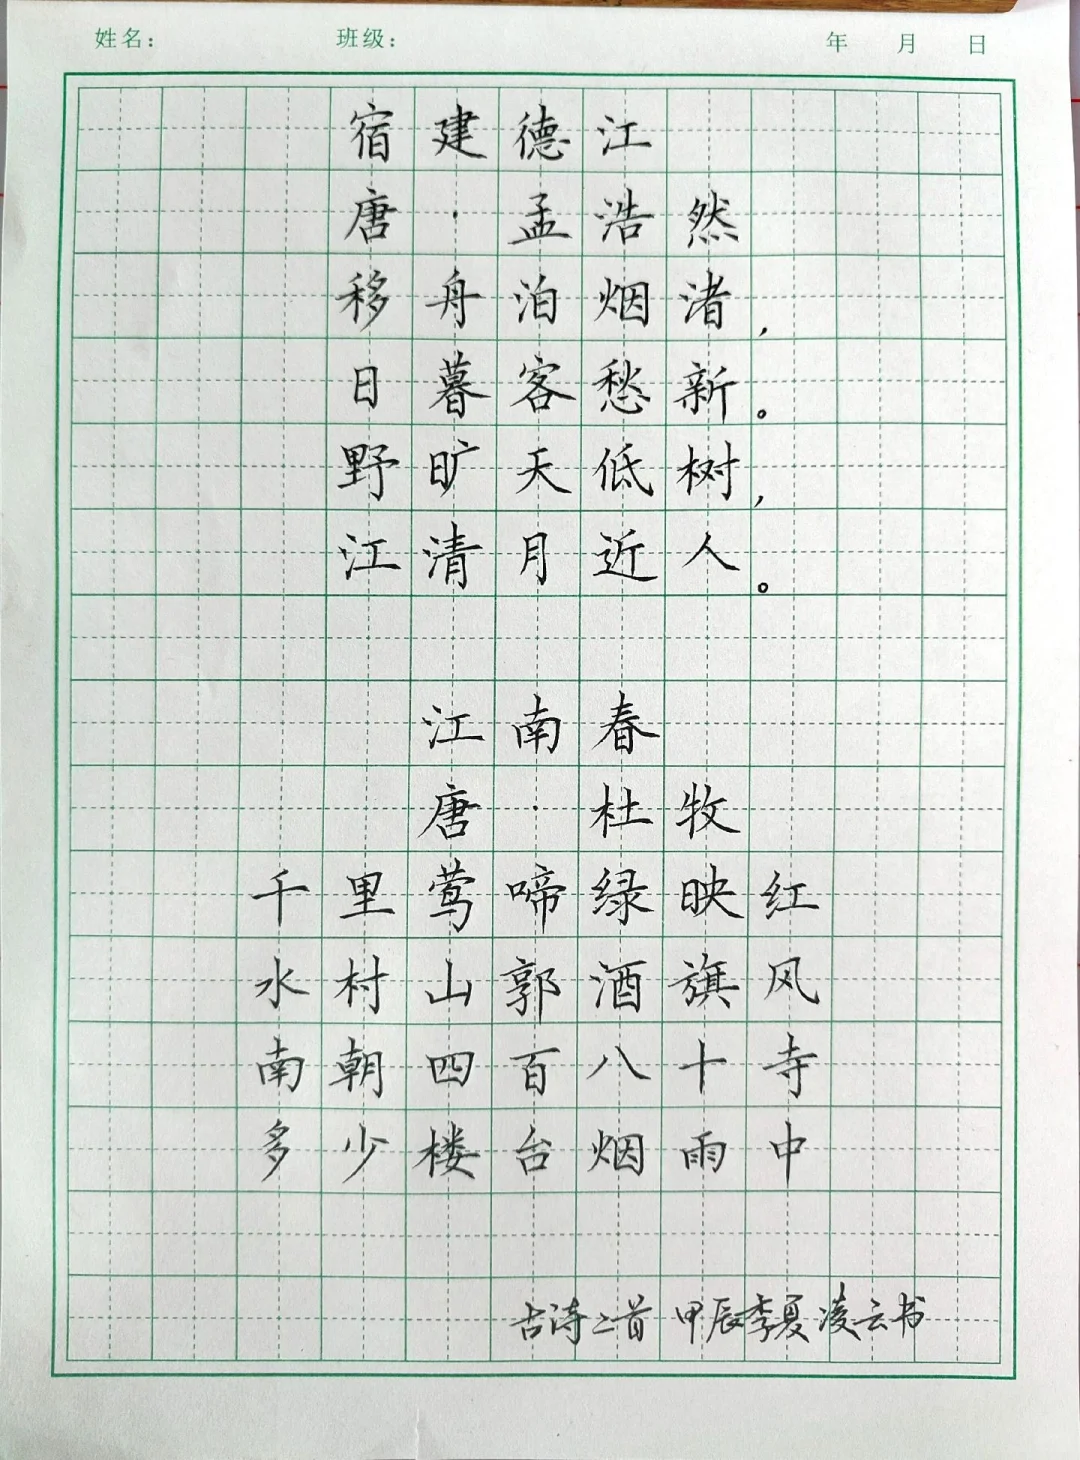 姓名： 班级： 年 月 日
宿建德江
唐·孟浩然
移舟泊烟渚，
日暮客愁新。
野旷天低树，
江清月近人。
江南春
唐·杜牧
千里莺啼绿映红
水村山郭酒旗风
南朝四百八十寺
多少楼台烟雨中
古诗二首 甲辰季夏凌云书